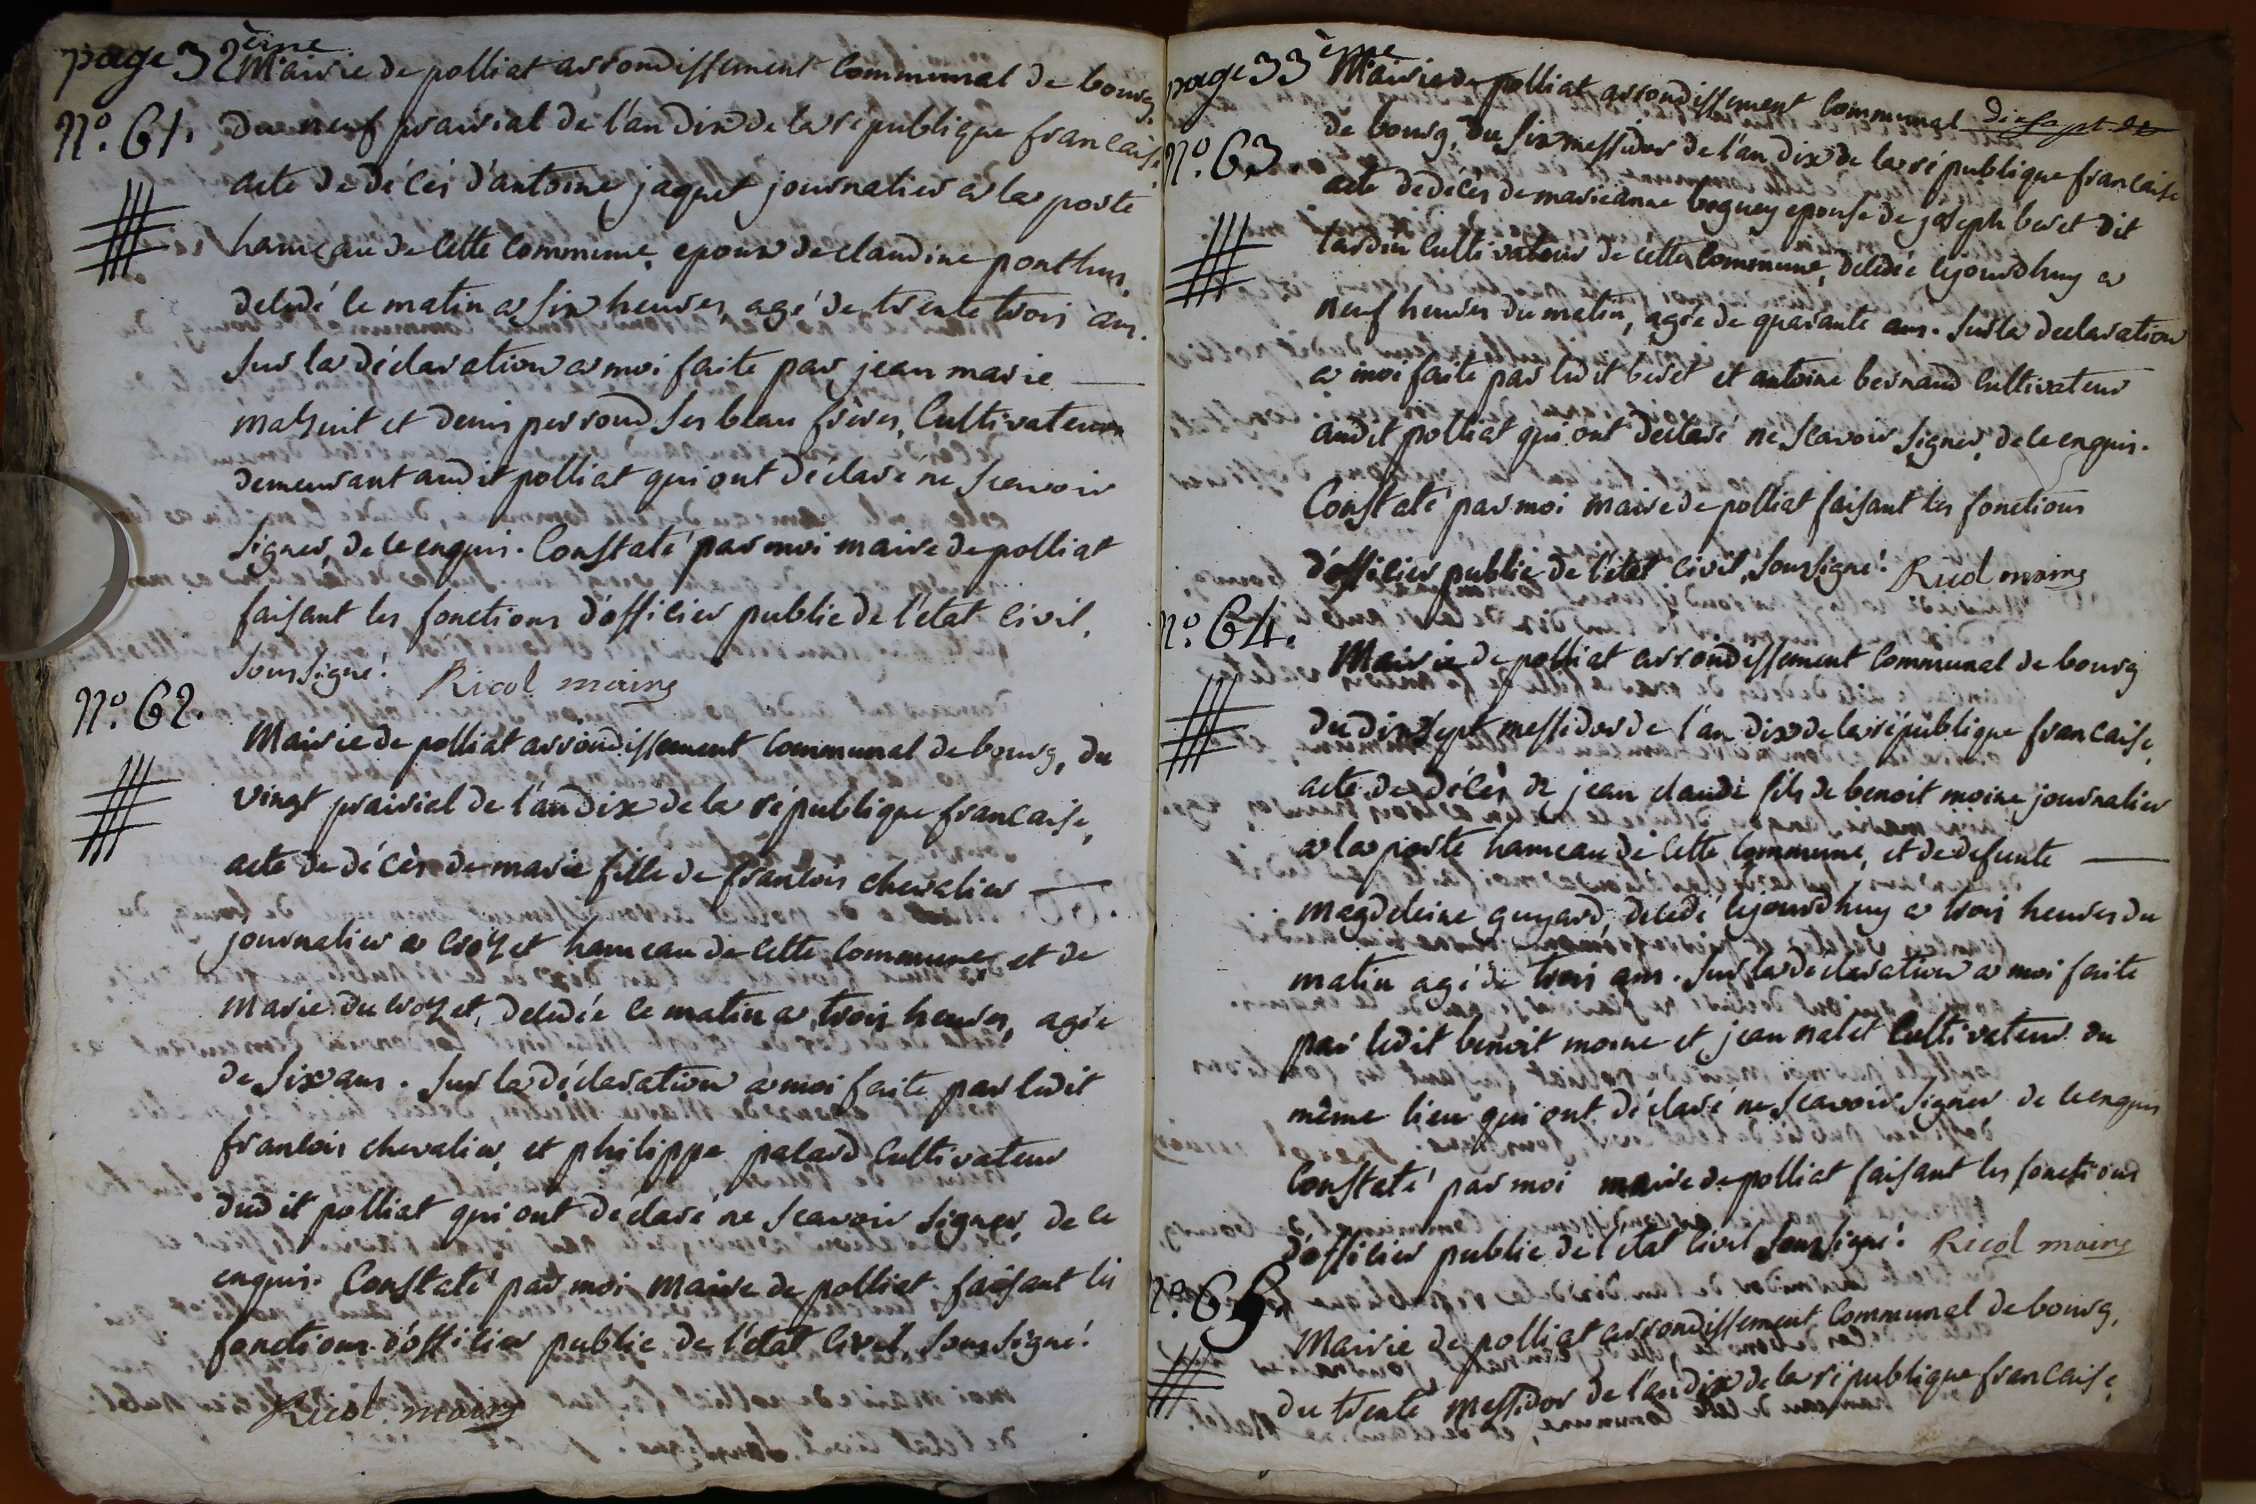 page 32ème
Mairie de polliat arrondissement Communal de bourg,
N.º 61. du neuf prairial de l'an dix de la république francaise,
acte de décès d'antoine jaquet journalier a la poste
hameau de cette commune, epoux de claudine ponthus,
decedé le matin a six heures, agé de trente trois ans.
Sur la déclaration a moi faite par jean marie
mazuit et denis perroud ses beau frères, Cultivateurs
demeurant audit polliat qui ont déclaré ne scavoir
signer, de ce enquis. Constaté par moi maire de polliat
faisant les fonctions d'officier public de l'état civil,
soussigné. Ricol maire
N.º 62.
Mairie de polliat arrondissement Communal de bourg, du
vingt prairial de l'an dix de la république francaise,
acte de décès de marie fille de francois chevalier
journalier a crozet hameau de cette Commune, et de
marie du crozet, decedée ce matin a trois heures, agée
de six ans. Sur la déclaration a moi faite par ledit
francois chevalier, et philippe palard Cultivateur
dudit polliat qui ont déclaré ne scavoir signer, de ce
enquis. Constaté par moi Maire de polliat faisant les
fonctions d'officier public de l'état civil, soussigné.
Ricol maire
page 33ème
Mairie de polliat arrondissement Communal dix sept de
de bourg, du six messidor de l'an dix de la république francaise
N.º 63. acte de décès de marieanne beguey epouse de joseph beret dit
tardin Cultivateur de cette Commune, decedée cejourdhuy a
neuf heures du matin, agée de quarante ans. Sur la declaration
a moi faite par ledit beret et antoine bernard Cultivateur
audit polliat qui ont declaré ne scavoir signer, de ce enquis.
Constaté par moi maire de polliat faisant les fonctions
d'officier public de l'état civil, soussigné. Ricol maire
N.º 64.
Mairie de polliat arrondissement Communal de bourg
du dix sept messidor de l'an dix de la république francaise,
acte de décès de jean claude fils de benoit moine journalier
a la poste hameau de cette Commune, et de defunte
magdeleine guyard, decedé cejourdhuy a trois heures du
matin agé de trois ans. Sur la declaration a moi faite
par ledit benoit moine et jean nalet Cultivateur du
même lieu qui ont déclaré ne scavoir signer de ce enquis
Constaté par moi maire de polliat faisant les fonctions
d'officier public de l'état civil soussigné. Ricol maire
N.º 65.
Mairie de polliat arrondissement Communal de bourg,
du trente messidor de l'an dix de la république francaise,